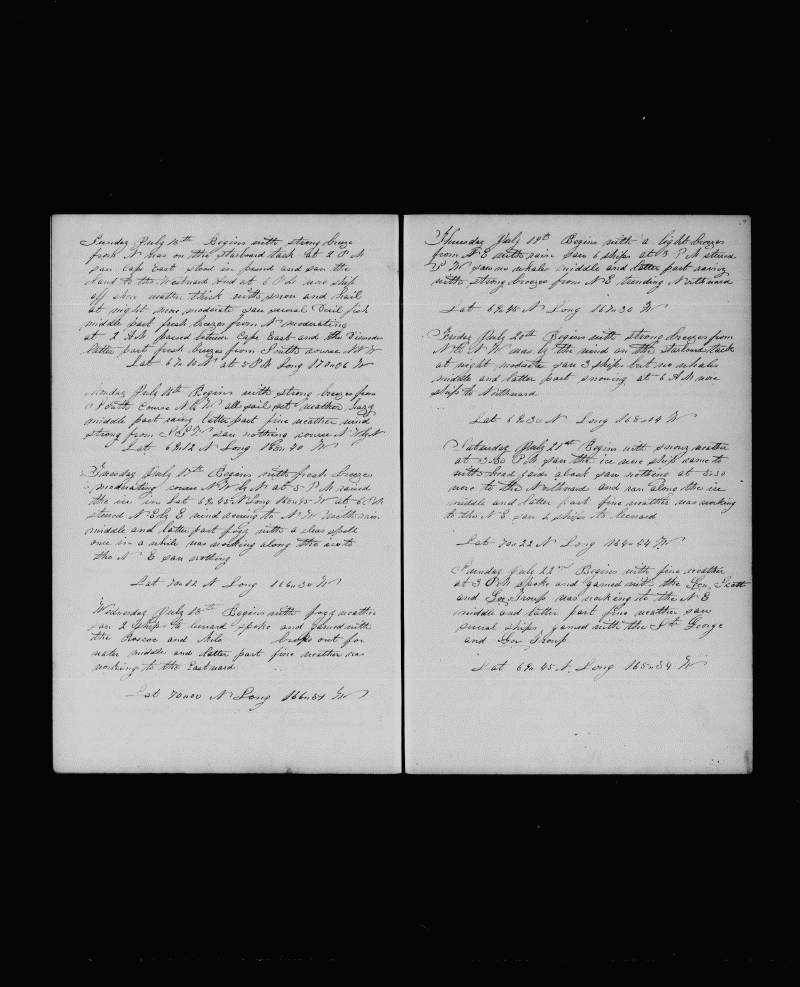 Sunday July 15th Begins with strong breeze
from N was on the Starboard tack at 2 P M
saw Cape East stood in passed and saw the
land to the Westward And at 6 P M wore ship
off shore weather thick with snow and hail
at night more moderate saw several Devil fish
middle part fresh breezes from N moderating
at 2 A M passed between Cape East and the
latter part fresh breezes from South course N N W
Lat 67 10 N at 5 P M Long 170 06 W
Monday July 16th Begins with strong breezes from
South Course N by W all sail set weather hazy
middle part rainy latter part fine weather wind
strong from S S W saw nothing course N W by N
Lat 69 12 N Long 168 40 W
Tuesday July 17th Begins with fresh breezes
moderating course N W by N at 3 P M raised
the ice in Lat 69 45 N Long 168 45 W at 6 P M
steered N E by E wind coming to N W with rain
middle and latter part fogg with a clear spell
once in a while was working along the ice to
the N E saw nothing
Lat 70 12 N Long 166 30 W
Wednesday July 18th Begins with fogg weather
saw 2 ships to leward spoke and gamed with
the Roscoe and Nile out for
water middle and latter part fine weather was
working to the Eastward
Lat 70 00 N Long 166 51 W
Thursday July 19th Begins with a light breezes
from N E with rain saw 6 ships at 3 P M steered
S W saw no whales middle and latter part rainy
with strong breezes from N E trending Northward
Lat 69 45 N Long 167 30 W
Friday July 20th Begins with strong breezes from
N to N N W was by the wind on the starboard tack
at night moderate saw 3 ships but no whales
middle and latter part snowing at 6 A M wore
ship to Northward
Lat 69 30 N Long 168 04 W
Saturday July 21st Begins with snowy weather
at 3:30 P M saw the ice wore ship came to
with head yards aback saw nothing at 5:30
wore to the Northward and ran along the ice
middle and latter part fine weather was working
to the N E saw 2 ships to leward
Lat 70 22 N Long 164 44 W
Sunday July 22nd Begins with fine weather
at 3 P M spoke and gamed with the Gen. Scott
and Gov Troup was working to the N E
middle and latter part fine weather saw
several ships, gamed with the St George
and Gov Troup
Lat 69 45 N. Long 165 34 W